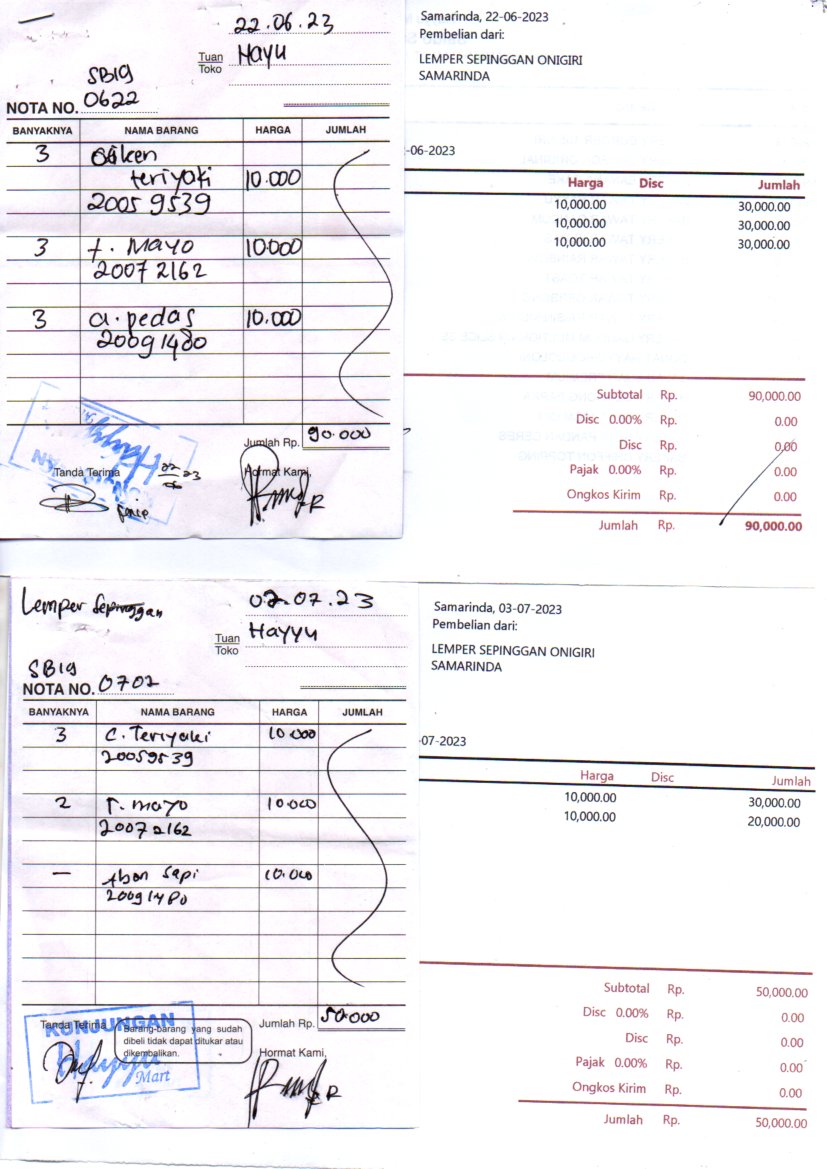 22.06.23
Tuan
Toko
Hayu
SB19
NOTA NO. 0622
BANYAKNYA NAMA BARANG HARGA JUMLAH
3 teriyaki 10.000
2005 9539
3 t. Mayo 10.000
2007 2162
3 a. pedas 10.000
20091480
Jumlah Rp. 90.000
Tanda Terima 22 23
Hormat Kami,
Samarinda, 22-06-2023
Pembelian dari:
LEMPER SEPINGGAN ONIGIRI
SAMARINDA
-06-2023
Harga Disc Jumlah
10,000.00 30,000.00
10,000.00 30,000.00
10,000.00 30,000.00
Subtotal Rp. 90,000.00
Disc 0.00% Rp. 0.00
Disc Rp. 0.00
Pajak 0.00% Rp. 0.00
Ongkos Kirim Rp. 0.00
Jumlah Rp. 90,000.00
Lemper Sepinggan
02.07.23
Tuan
Toko
Hayyu
SB19
NOTA NO. 0702
BANYAKNYA NAMA BARANG HARGA JUMLAH
3 C. Teriyaki 10.000
20059539
2 T. mayo 10.000
20072162
— Abon Sapi 10.000
20091480
Jumlah Rp. 50.000
Tanda Terima
KUNJUNGAN
Hayyu
Mart
Barang-barang yang sudah
dibeli tidak dapat ditukar atau
dikembalikan.
Hormat Kami,
Samarinda, 03-07-2023
Pembelian dari:
LEMPER SEPINGGAN ONIGIRI
SAMARINDA
-07-2023
Harga Disc Jumlah
10,000.00 30,000.00
10,000.00 20,000.00
Subtotal Rp. 50,000.00
Disc 0.00% Rp. 0.00
Disc Rp. 0.00
Pajak 0.00% Rp. 0.00
Ongkos Kirim Rp. 0.00
Jumlah Rp. 50,000.00